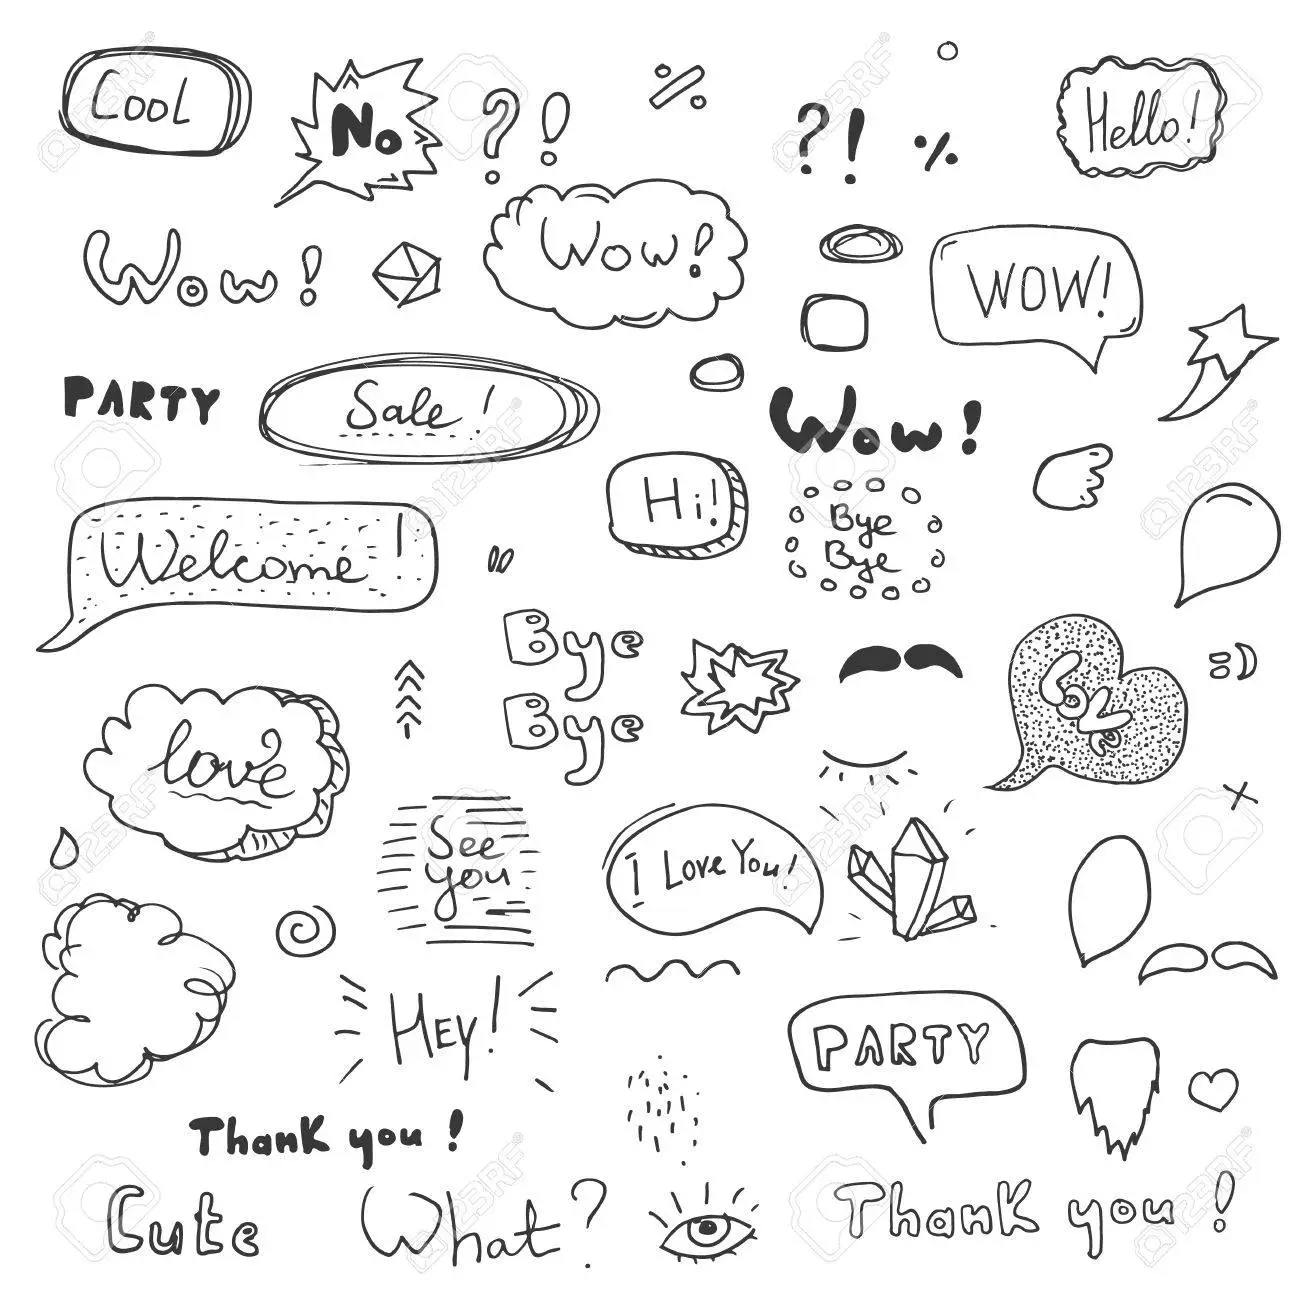 Cool
No
?!
%
?!
%
Hello!
Wow!
Wow!
WOW!
PARTY
Sale!
Wow!
Hi!
Bye
Bye
Welcome!
Bye
Bye
Love
love
See
you
I Love You!
HEY!
PARTY
Thank you!
Cute
What?
Thank you!
123RF